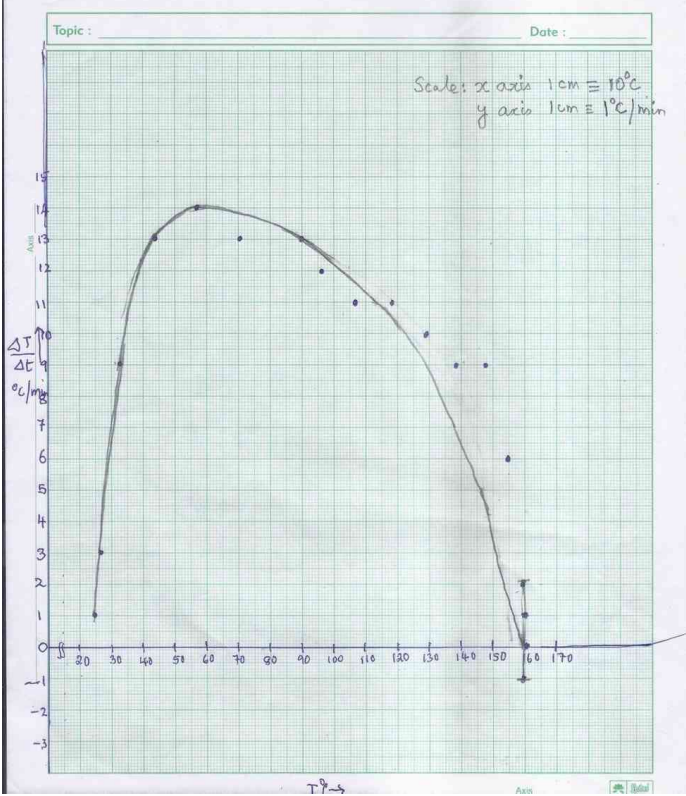 Topic :
Date :
Scale: x axis 1 cm ≡ 10°C
y axis 1 cm ≡ 1°C/min
15
14
13
Axis
12
11
10
ΔT
Δt
9
°C/min
8
7
6
5
4
3
2
1
0
20 30 40 50 60 70 80 90 100 110 120 130 140 150 160 170
-1
-2
-3
T°→
Axis